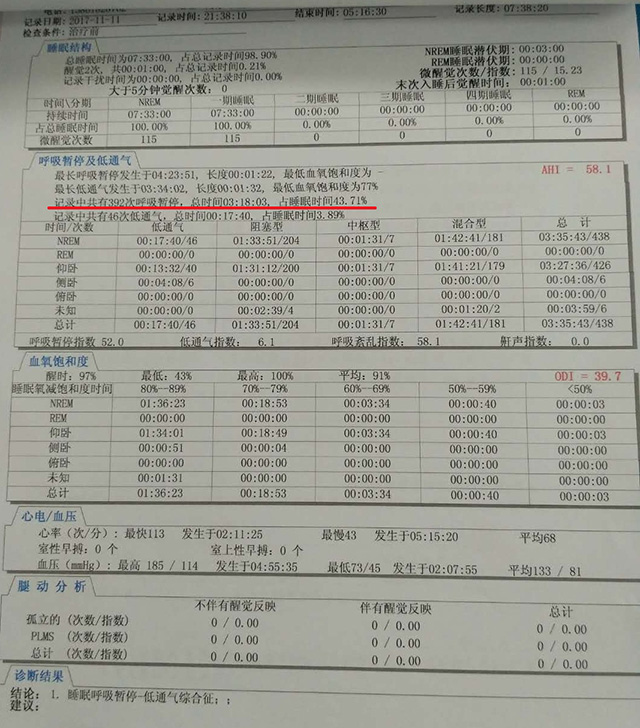 记录日期: 2017-11-11 记录时间: 21:38:10 结束时间: 05:16:30 记录长度: 07:38:20
检查条件: 治疗前
睡眠结构
总睡眠时间为07:33:00, 占总记录时间98.90% NREM睡眠潜伏期: 00:03:00
醒觉2次, 共00:01:00, 占总记录时间0.21% REM睡眠潜伏期: 00:00:00
记录干扰时间为00:00:00, 占总记录时间0.00% 微醒觉次数/指数: 115 / 15.23
大于5分钟觉醒次数: 0 末次入睡后觉醒时间: 00:01:00
时间\分期 NREM 一期睡眠 二期睡眠 三期睡眠 四期睡眠 REM
持续时间 07:33:00 07:33:00 00:00:00 00:00:00 00:00:00 00:00:00
占总睡眠时间 100.00% 100.00% 0.00% 0.00% 0.00% 0.00%
微醒觉次数 115 115 0 0 0 0
呼吸暂停及低通气
最长呼吸暂停发生于04:23:51, 长度00:01:22, 最低血氧饱和度为 - AHI = 58.1
最长低通气发生于03:34:02, 长度00:01:32, 最低血氧饱和度为77%
记录中共有392次呼吸暂停, 总时间03:18:03, 占睡眠时间43.71%
记录中共有46次低通气, 总时间00:17:40, 占睡眠时间3.89%
时间/次数 低通气 阻塞型 中枢型 混合型 总 计
NREM 00:17:40/46 01:33:51/204 00:01:31/7 01:42:41/181 03:35:43/438
REM 00:00:00/0 00:00:00/0 00:00:00/0 00:00:00/0 00:00:00/0
仰卧 00:13:32/40 01:31:12/200 00:01:31/7 01:41:21/179 03:27:36/426
侧卧 00:04:08/6 00:00:00/0 00:00:00/0 00:00:00/0 00:04:08/6
俯卧 00:00:00/0 00:00:00/0 00:00:00/0 00:00:00/0 00:00:00/0
未知 00:00:00/0 00:02:39/4 00:00:00/0 00:01:20/2 00:03:59/6
总计 00:17:40/46 01:33:51/204 00:01:31/7 01:42:41/181 03:35:43/438
呼吸暂停指数 52.0 低通气指数: 6.1 呼吸紊乱指数: 58.1 鼾声指数: 0.0
血氧饱和度
醒时: 97% 最低: 43% 最高: 100% 平均: 91% ODI = 39.7
睡眠氧减饱和度时间 80%--89% 70%--79% 60%--69% 50%--59% <50%
NREM 01:36:23 00:18:53 00:03:34 00:00:40 00:00:03
REM 00:00:00 00:00:00 00:00:00 00:00:00 00:00:00
仰卧 01:34:01 00:18:49 00:03:34 00:00:40 00:00:03
侧卧 00:00:51 00:00:04 00:00:00 00:00:00 00:00:00
俯卧 00:00:00 00:00:00 00:00:00 00:00:00 00:00:00
未知 00:01:31 00:00:00 00:00:00 00:00:00 00:00:00
总计 01:36:23 00:18:53 00:03:34 00:00:40 00:00:03
心电/血压
心率（次/分）: 最快113 发生于02:11:25 最慢43 发生于05:15:20 平均68
室性早搏: 0 个 室上性早搏: 0 个
血压（mmHg）: 最高 185 / 114 发生于04:55:35 最低73/45 发生于02:07:55 平均133 / 81
腿动分析
不伴有醒觉反映 伴有醒觉反映 总计
孤立的（次数/指数） 0 / 0.00 0 / 0.00 0 / 0.00
PLMS （次数/指数） 0 / 0.00 0 / 0.00 0 / 0.00
总计 （次数/指数） 0 / 0.00 0 / 0.00 0 / 0.00
诊断结果
结论: 1. 睡眠呼吸暂停-低通气综合征; ;
建议: